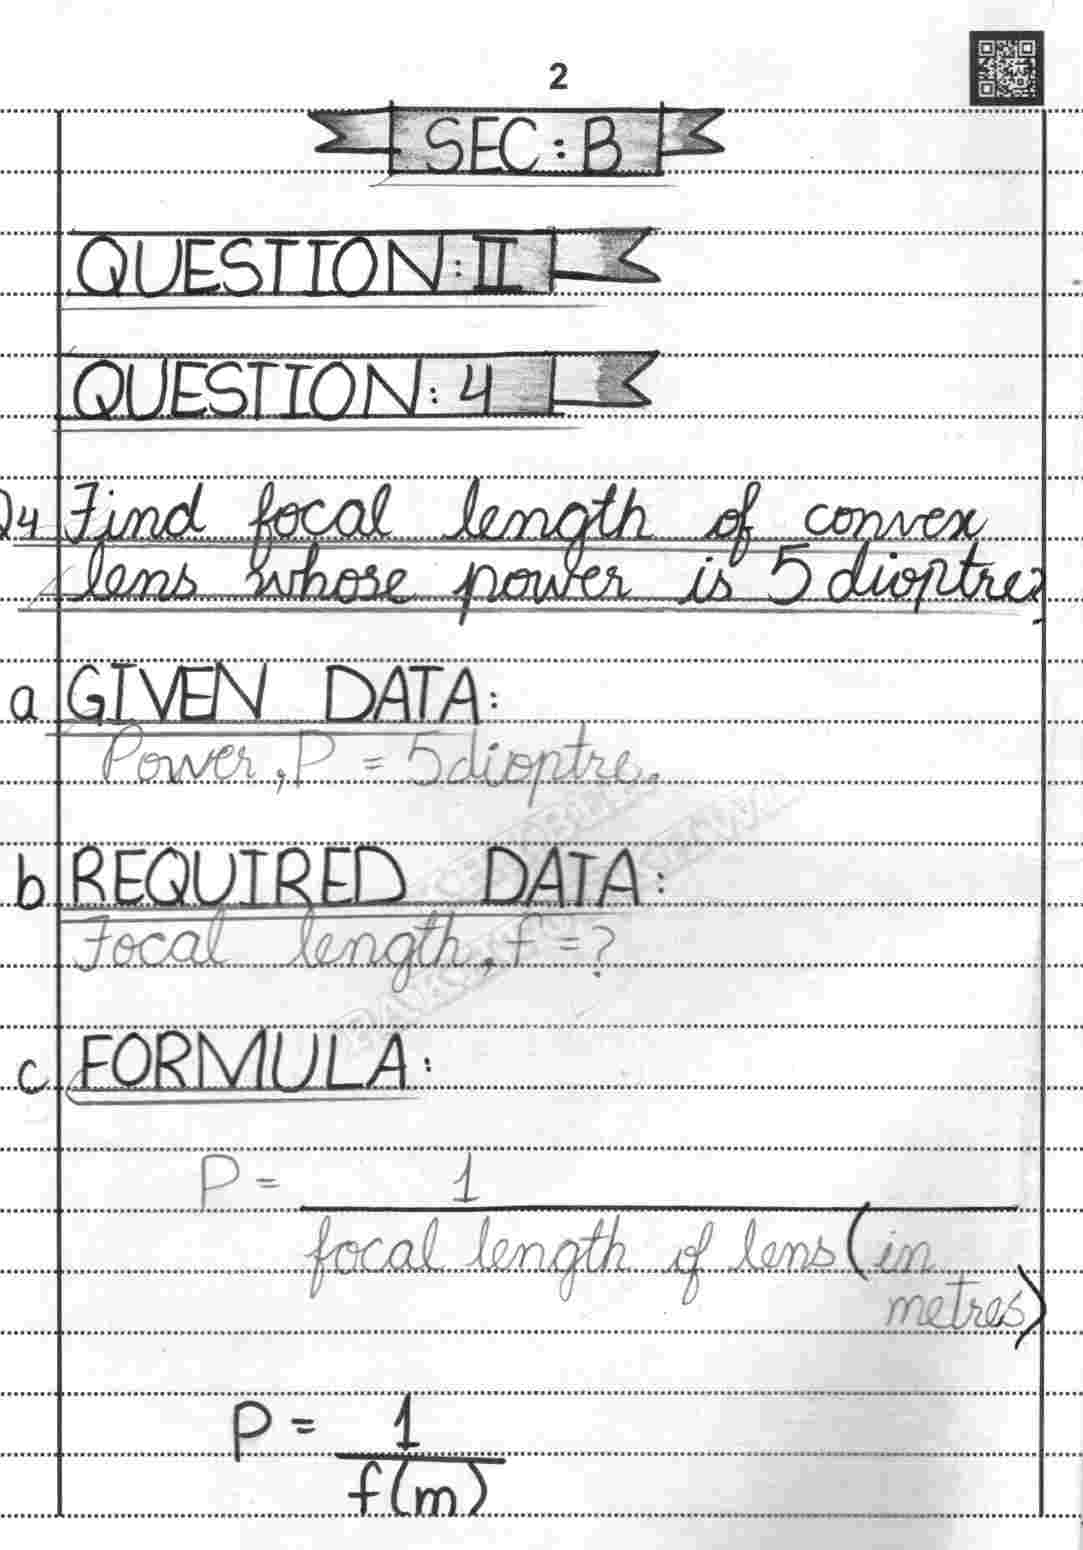 2
SEC: B
QUESTION: II
QUESTION: 4
Q4 Find focal length of convex
lens whose power is 5 dioptre?
a GIVEN DATA:
Power, P = 5 dioptre.
b REQUIRED DATA:
Focal length, f = ?
c FORMULA:
P = 1
focal length of lens (in
metres)
P = 1
f(m)